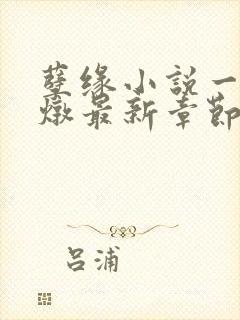 孽缘小説一
燉最新章節
吕浦